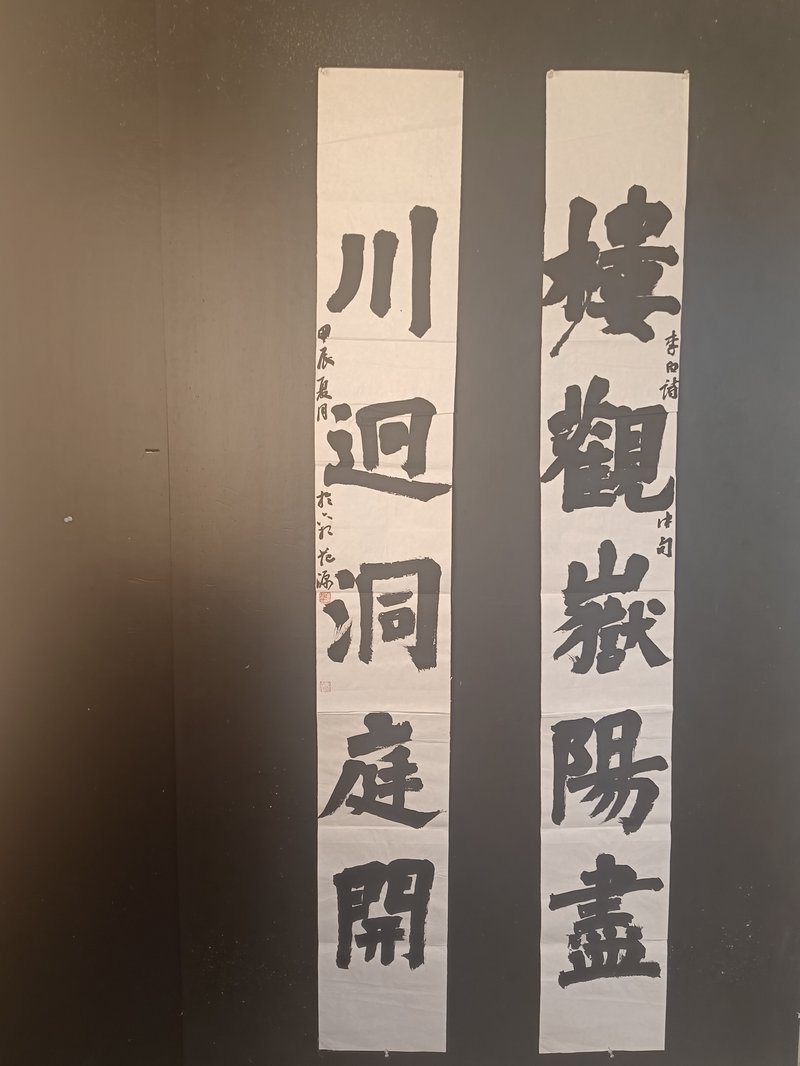 樓觀嶽陽盡
李白詩
中句
川迥洞庭開
甲辰夏月
於
花源